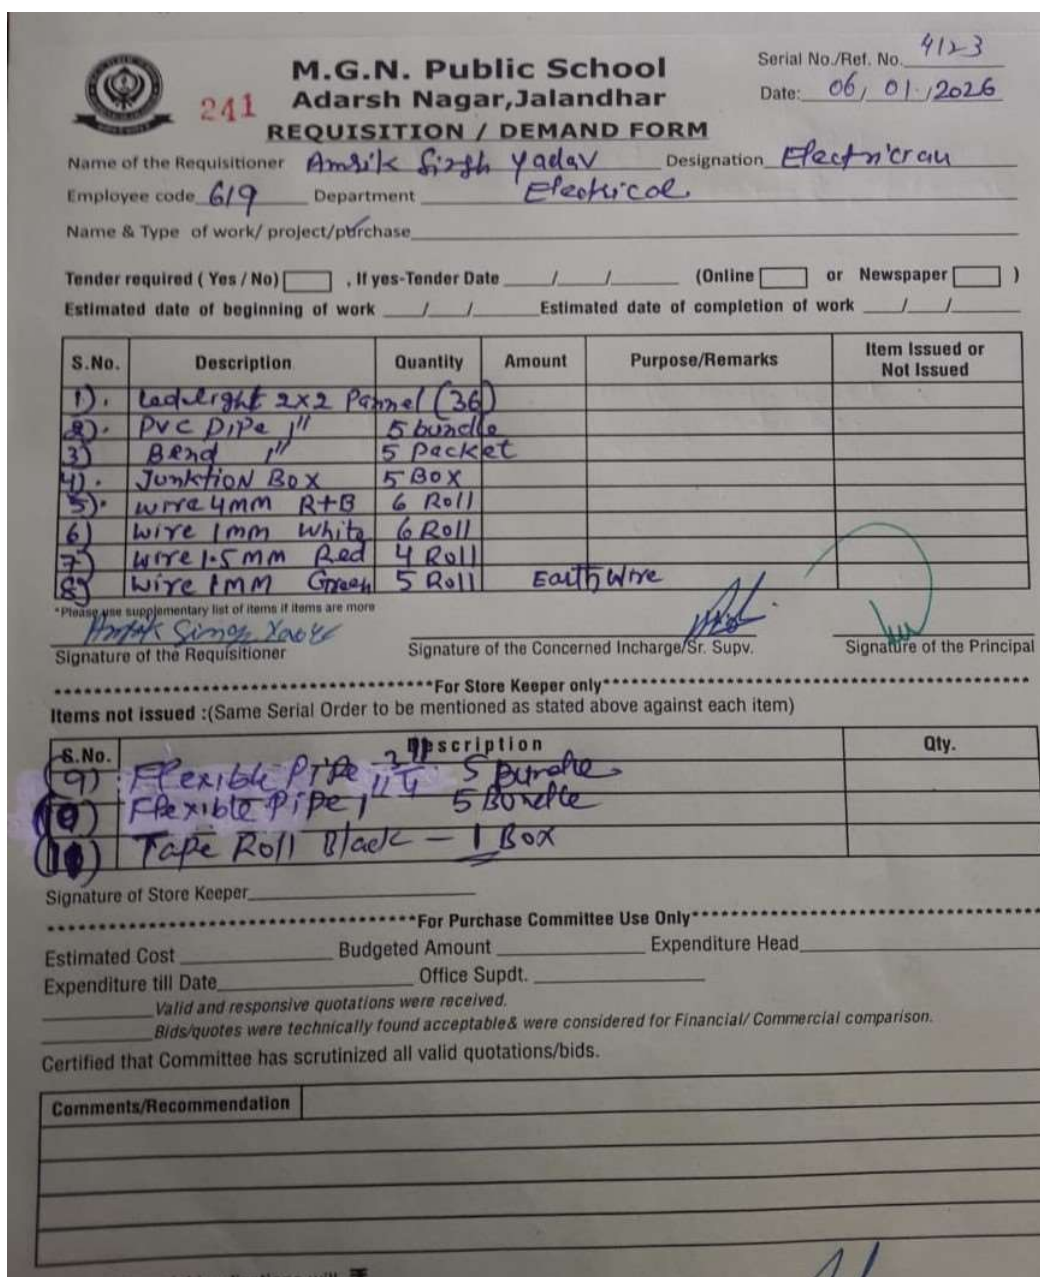 Serial No./Ref. No. 4123
M.G.N. Public School
241 Adarsh Nagar,Jalandhar
Date: 06/01/2026
REQUISITION / DEMAND FORM
Name of the Requisitioner Amrik Singh Yadav Designation Electrician
Employee code 619 Department Electrical
Name & Type of work/ project/purchase
Tender required ( Yes / No) , If yes-Tender Date / / (Online or Newspaper )
Estimated date of beginning of work / / Estimated date of completion of work / /
S.No. Description Quantity Amount Purpose/Remarks Item Issued or Not Issued
1). Ledlight 2x2 Pannel (36)
2). PVC Pipe 1" 5 bundle
3) Bend 1" 5 Packet
4). Junktion Box 5 Box
5). wire 4mm R+B 6 Roll
6) wire 1mm White 6 Roll
7) wire 1.5 mm Red 4 Roll
8) wire 1mm Green 5 Roll Earth Wire
*Please use supplementary list of items if items are more
Signature of the Requisitioner Signature of the Concerned Incharge/Sr. Supv. Signature of the Principal
For Store Keeper only
Items not issued :(Same Serial Order to be mentioned as stated above against each item)
S.No. Description Qty.
9) Flexible Pipe 5 Bundle
10) Flexible Pipe 1" 5 Bundle
11) Tape Roll Black - 1 Box
Signature of Store Keeper
For Purchase Committee Use Only
Estimated Cost Budgeted Amount Expenditure Head
Expenditure till Date Office Supdt.
Valid and responsive quotations were received.
Bids/quotes were technically found acceptable& were considered for Financial/ Commercial comparison.
Certified that Committee has scrutinized all valid quotations/bids.
Comments/Recommendation